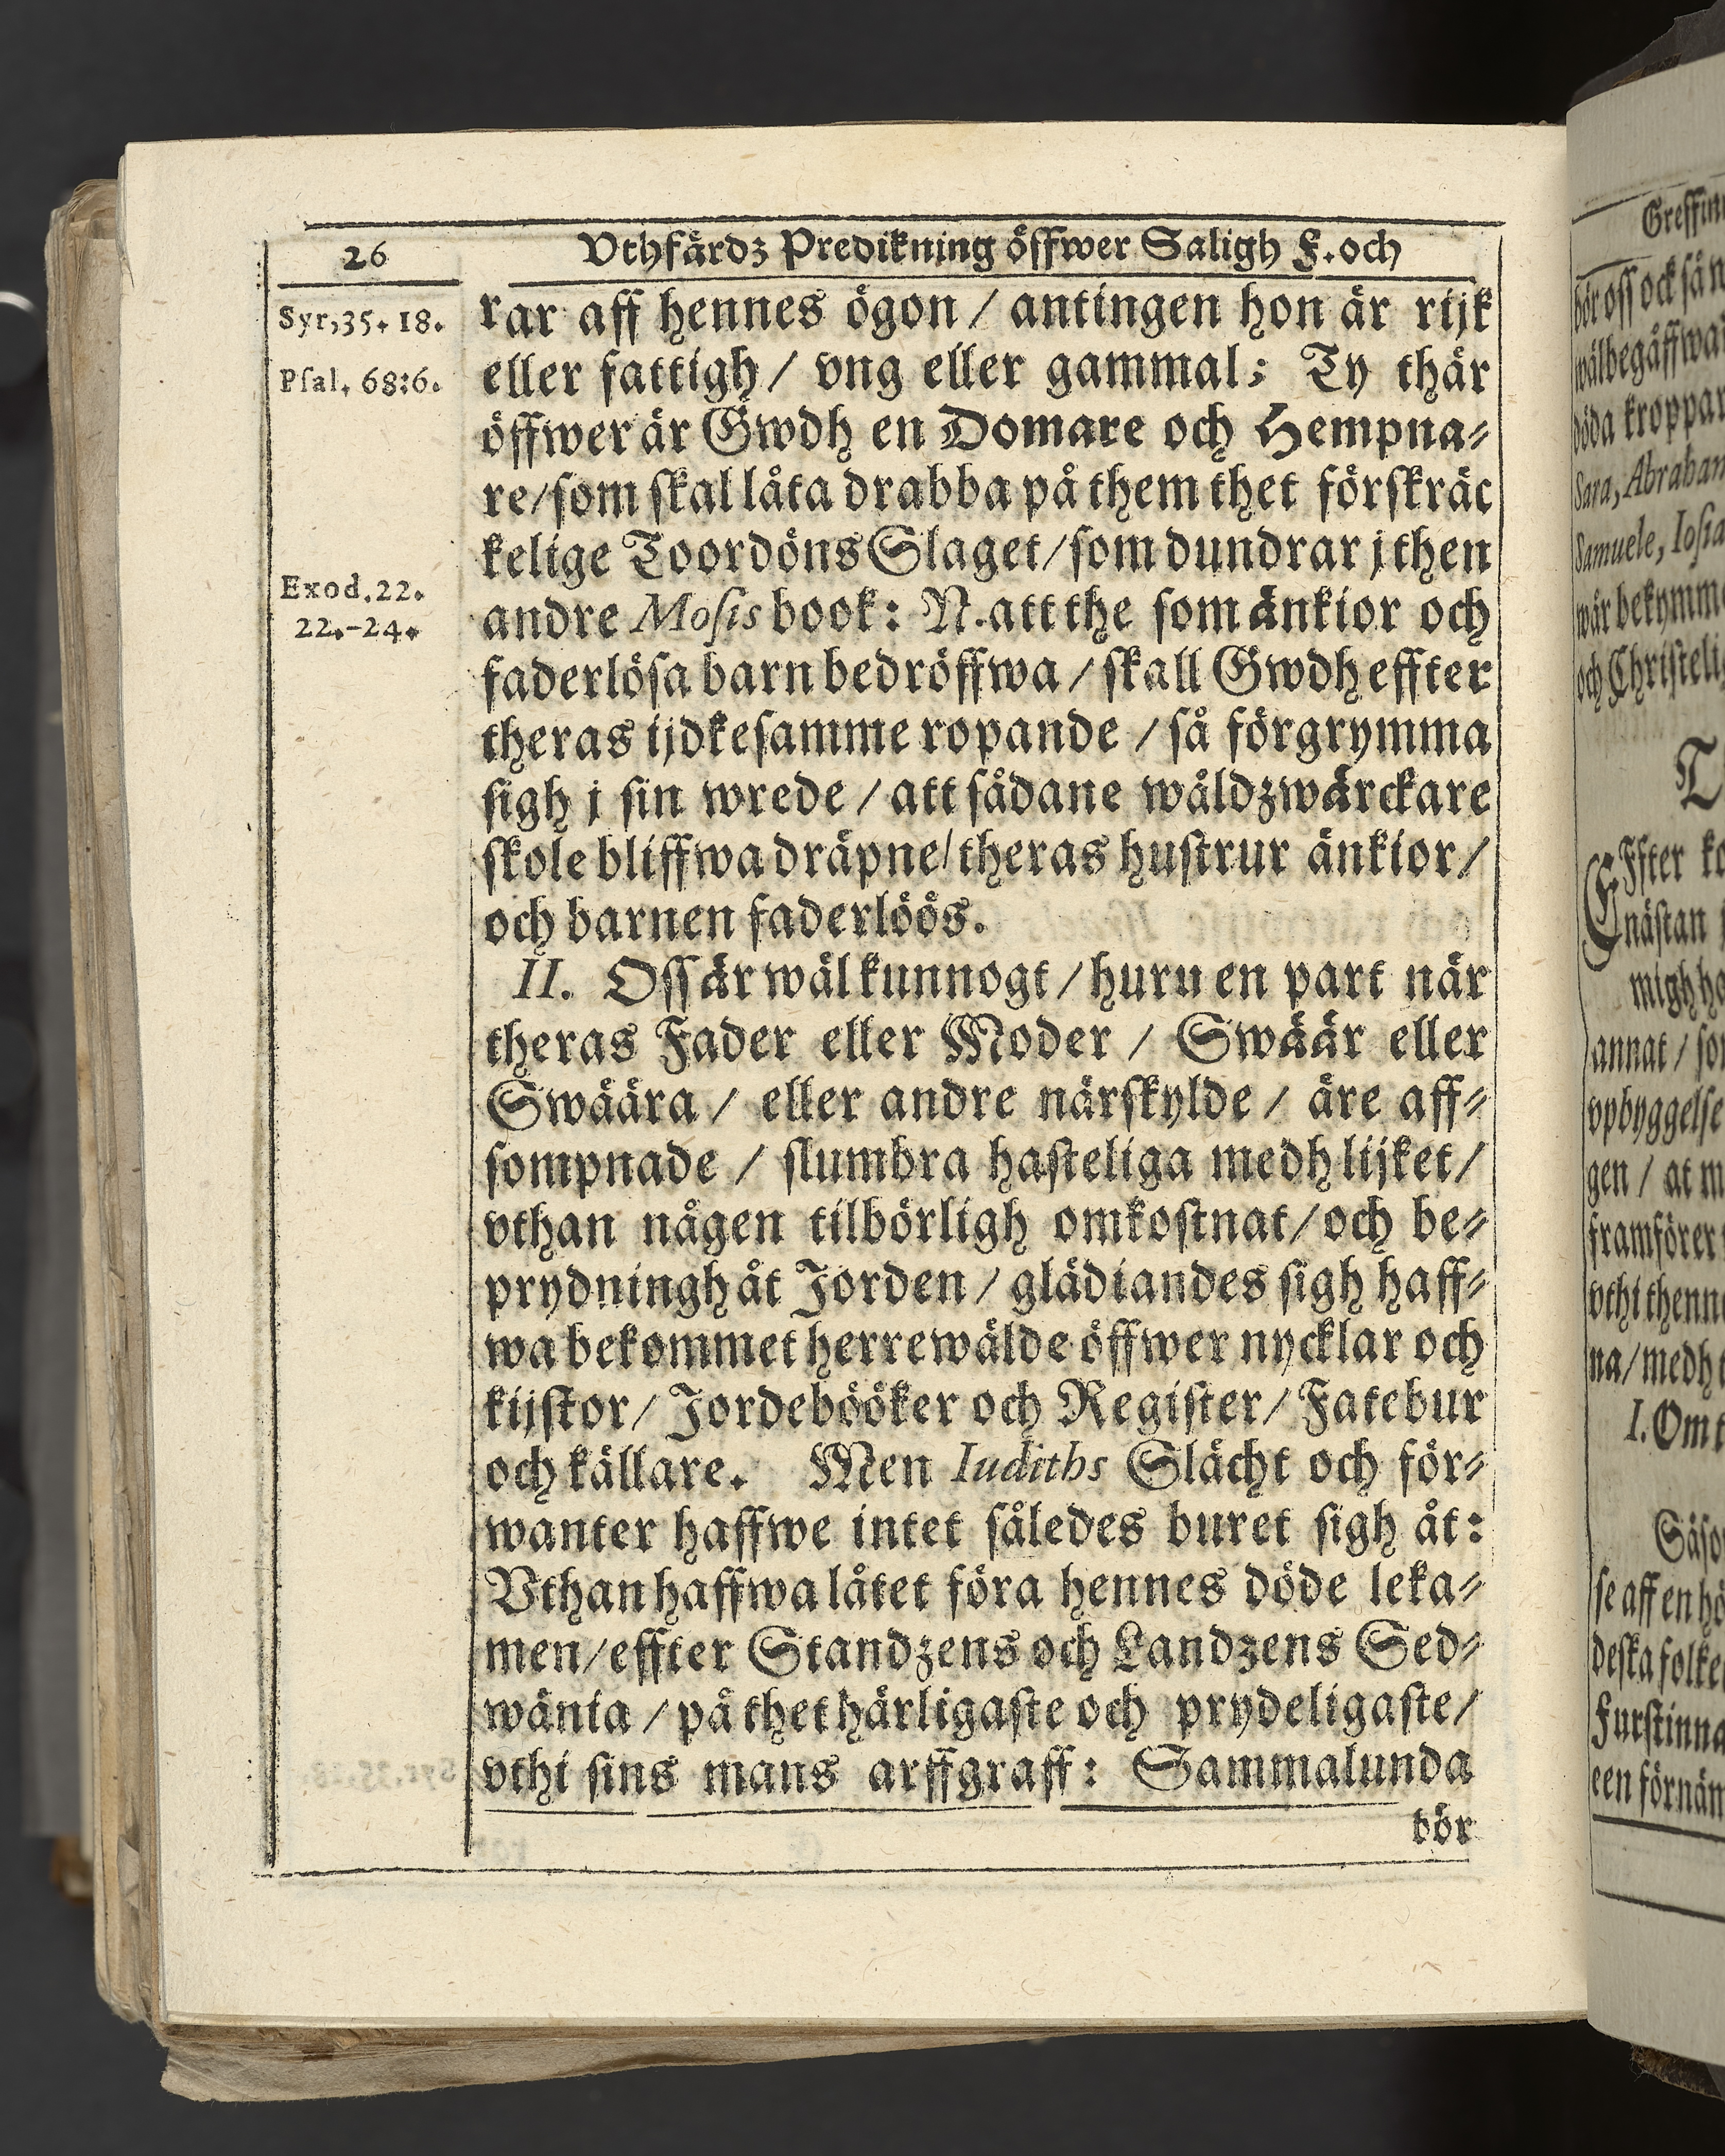 26
Vthfärdz Predikning öffwer Saligh F. och
Syr,35. 18.
Pſal. 68:6.
Exod.22.
22.-24.
rar aff hennes ögon / antingen hon är rijk
eller fattigh / vng eller gammal; Ty thär
öffwer är Gwdh en Domare och Hempna⸗
re/som ſkal låta drabba på them thet förſkräc
kelige Toordöns Slaget/ſom dundrar j then
andre Moſis book: N. att the ſom änkior och
faderlöſa barn bedröffwa / ſkall Gwdh effter
theras ijdkeſamme ropande / ſå förgrymma
ſigh j ſin wrede / att ſådane wåldzwärckare
ſkole bliffwa dräpne/ theras huſtrur änkior/
och barnen faderlöös.
II. Oſſ är wäl kunnogt / huru en part när
theras Fader eller Moder / Swäär eller
Swäära / eller andre närſkylde / äre aff⸗
ſompnade / ſlumbra haſteliga medh lijket/
vthan någen tilbörligh omkoſtnat/och be⸗
prydningh åt Jorden / glädiandes ſigh haff⸗
wa bekommet herrewälde öffwer nycklar och
kijſtor/ Jordebööker och Regiſter/ Fatebur
och källare. Men Iudiths Slächt och för⸗
wanter haffwe intet ſåledes buret ſigh åt:
Vthan haffwa låtet föra hennes döde leka⸗
men/effter Standzens och Landzens Sed⸗
wänia / på thet härligaſte och prydeligaſte/
vthi ſins mans arffgraff: Sammalunda
bör
bör oſſ ock ſän
wälbegåffwa
döda kroppar
Sara, Abraham
Samuele, Ioſia
wår bekymm
och Chriſtelig
Effter
näſtan
migh ha
annat / ſo
vpbyggelſe
gen / at m
framförer
vthi thenn
na/ medh
I. Om
Såſo
ſe aff en hö
deſka folke
Furſtinna
een förnäm